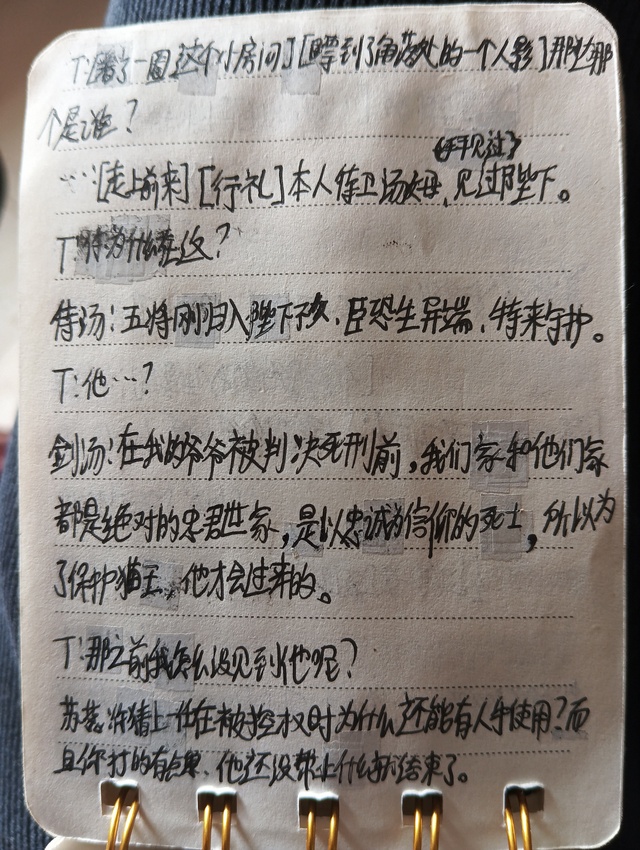 T:[瞟了一圈这个小房间][瞟到了角落处的一个人影]那边那
个是谁？
(于见过)
……:[走上前来][行礼]本人侍卫汤姆,见过陛下。
T:你为什么在这？
侍汤:五将刚归入陛下不久,臣恐生异端,特来守护。
T:他…？
剑汤:在我的爷爷被判决死刑前,我们家和他们家
都是绝对的忠君世家,是以忠诚为信仰的死士,所以为
了保护猫王,他才会过来的。
T:那之前我怎么没见到他呢？
苏蕊:你猜上一任在被控权时为什么还能有人手使用？而
且你打的有点快,他还没帮上什么就结束了。